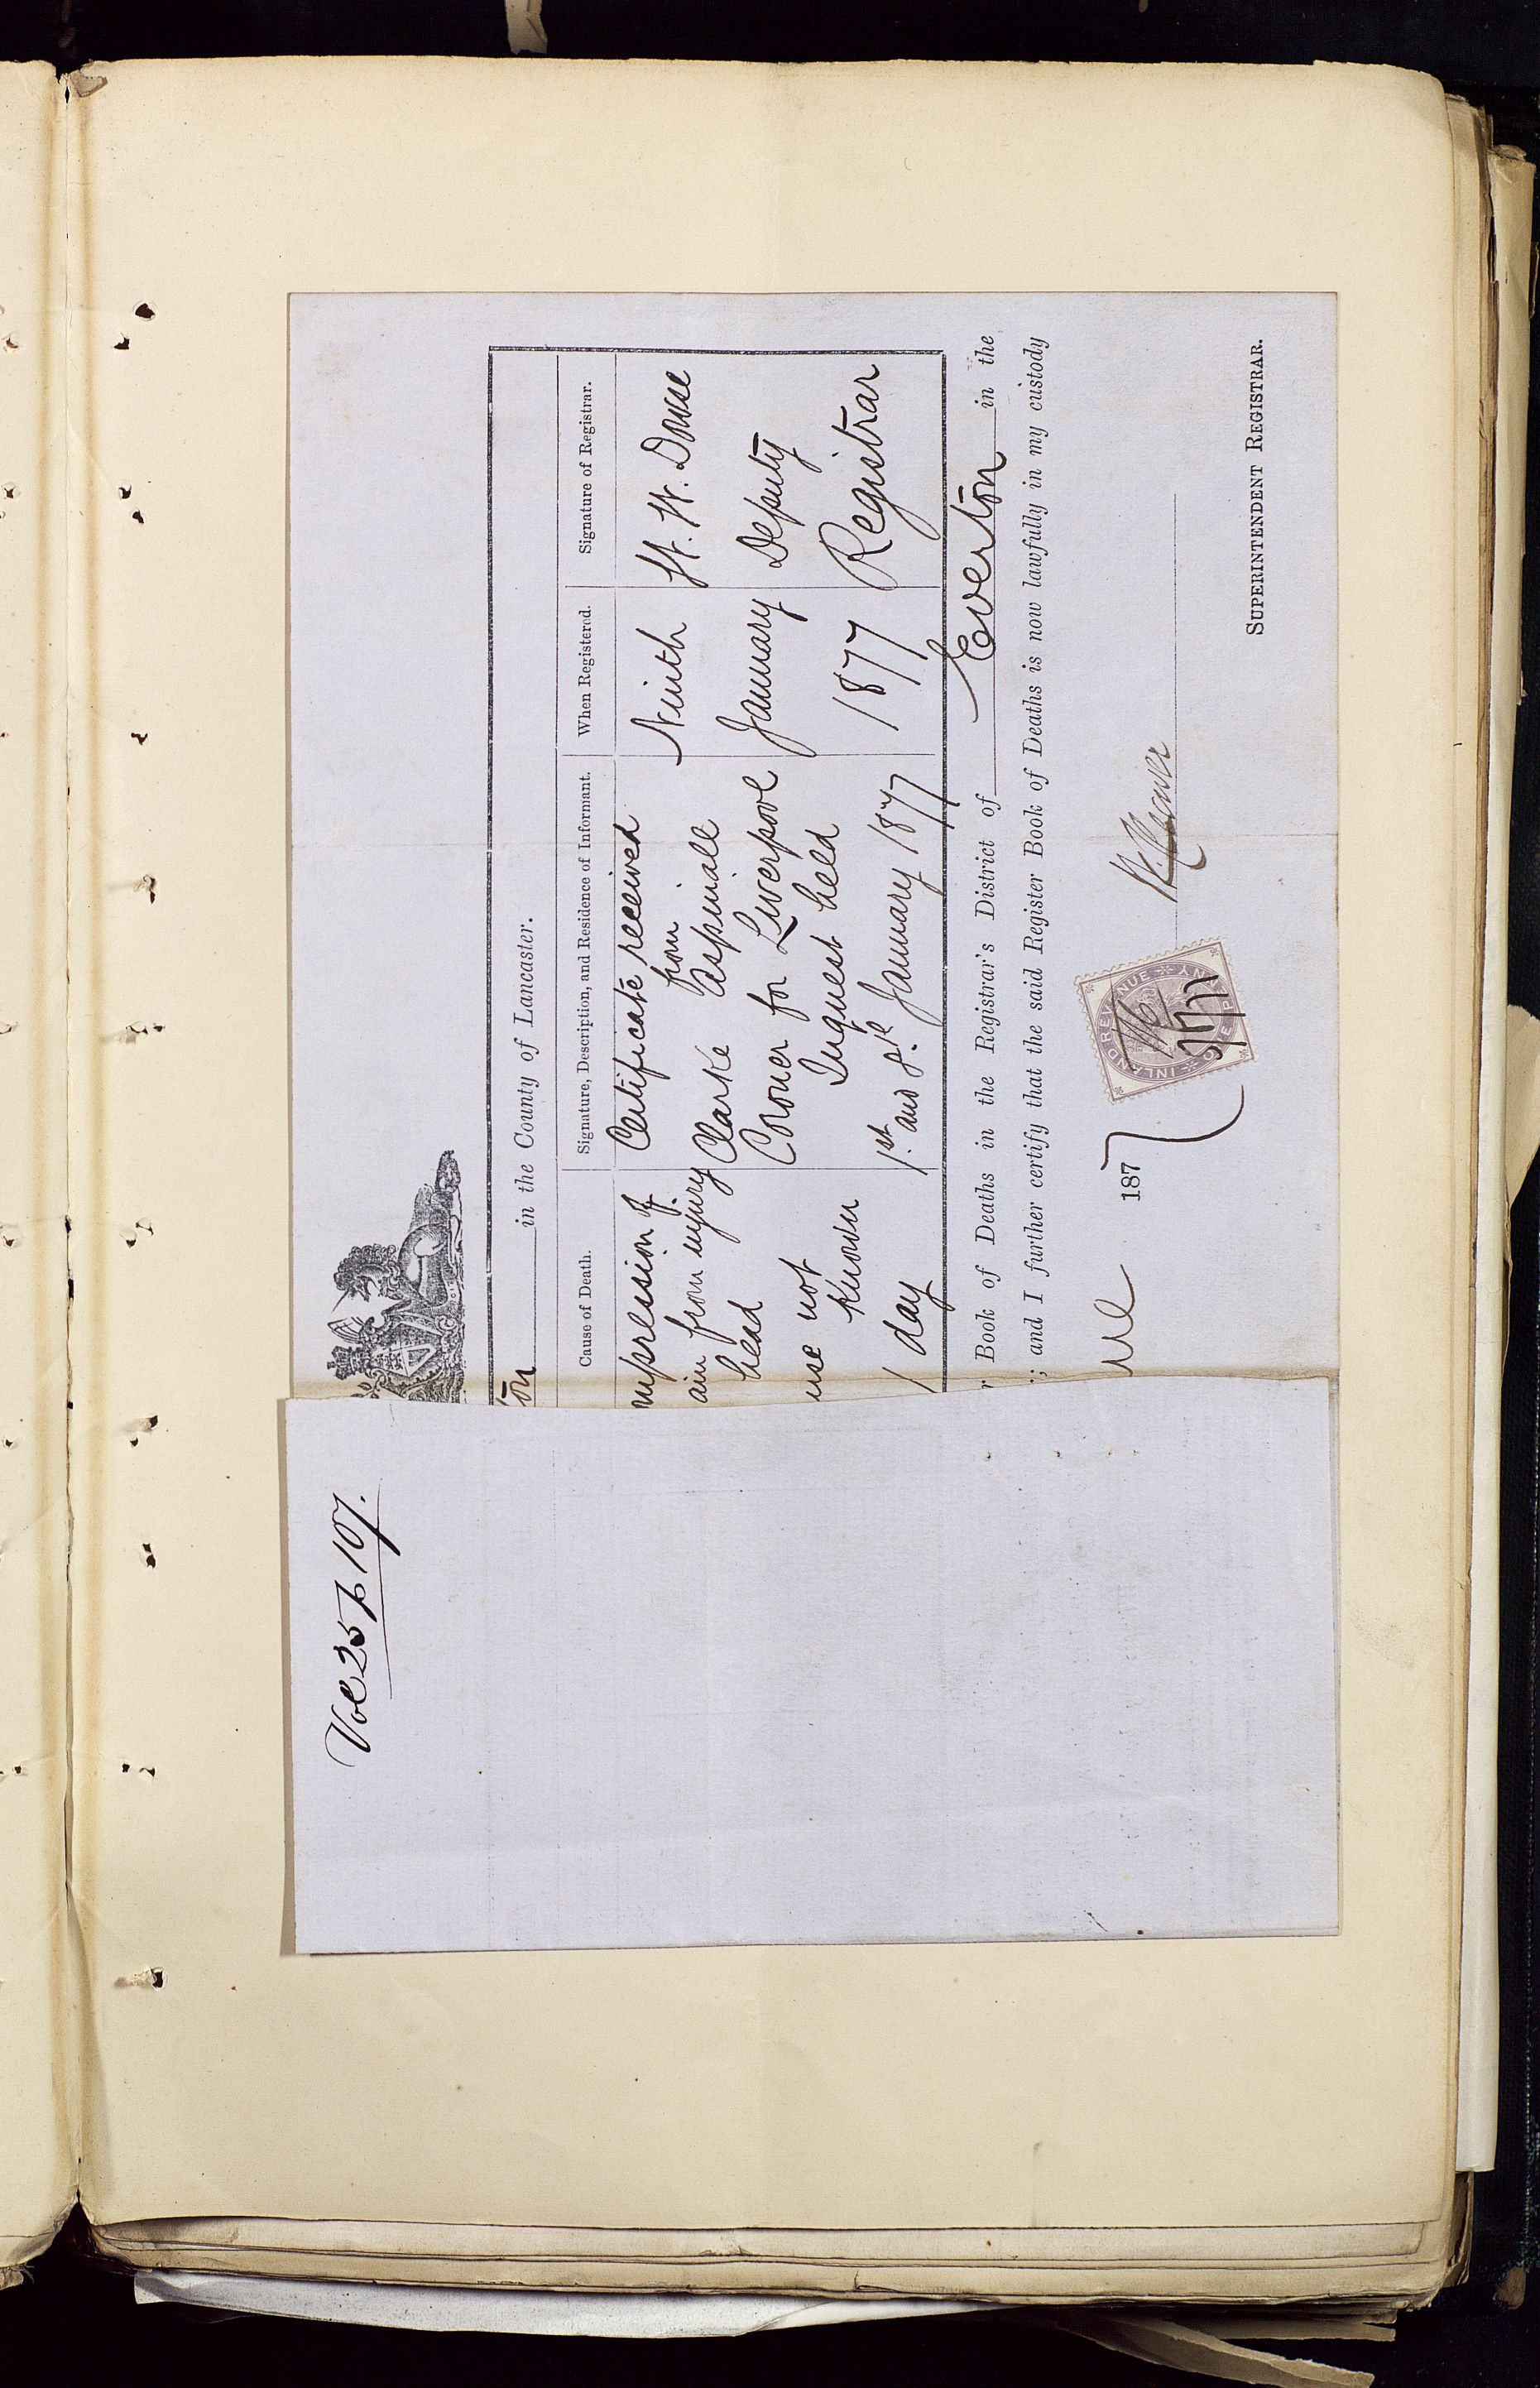 Vol 25 p 107.
ton in the County of Lancaster.
Cause of Death.
Signature, Description, and Residence of Informant.
When Registered.
Signature of Registrar.
mpression of
ain from injury
head
use not
known
1 day
Certificate received
from
Clarke Aspinall
Coroner for Liverpool
Inquest held
1st and 8th January 1877
Ninth
January
1877
H. W. Dowse
Deputy
Registrar
r Book of Deaths in the Registrar's District of Everton in the
; and I further certify that the said Register Book of Deaths is now lawfully in my custody
une 1877
INLAND REVENUE
ONE PENNY
SUPERINTENDENT REGISTRAR.